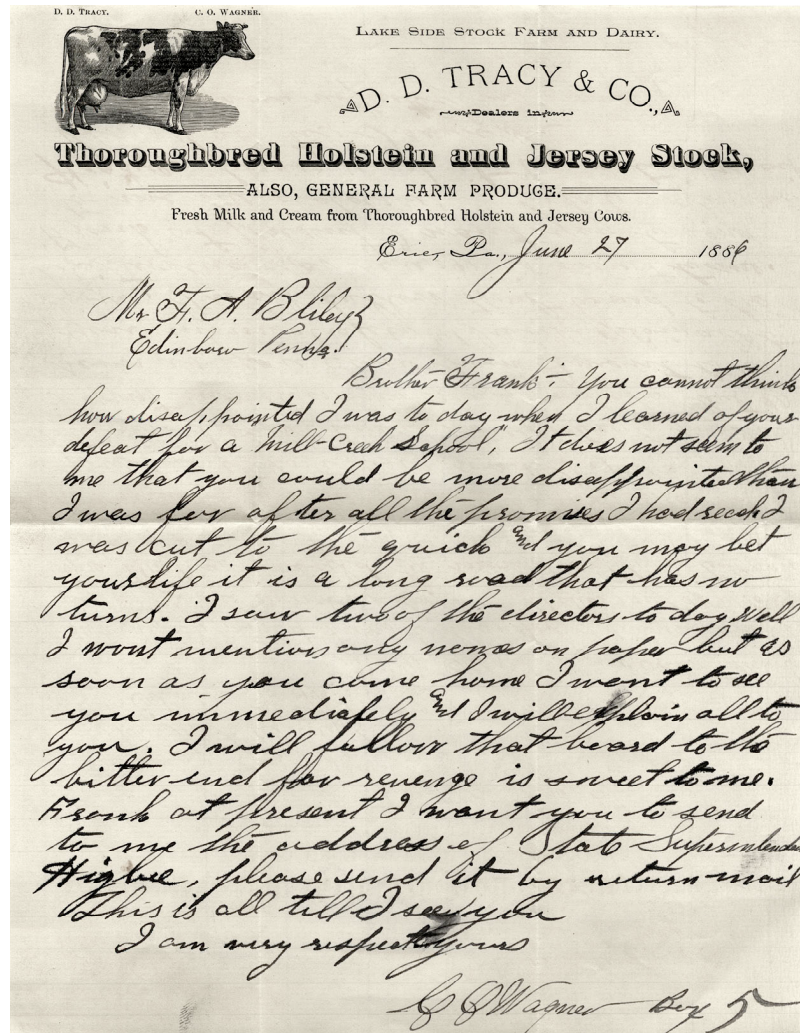 D. D. TRACY. C. O. WAGNER.
LAKE SIDE STOCK FARM AND DAIRY.
D. D. TRACY & CO.,
Dealers in
Thoroughbred Holstein and Jersey Stock,
ALSO, GENERAL FARM PRODUCE.
Fresh Milk and Cream from Thoroughbred Holstein and Jersey Cows.
Erie, Pa., June 27 1886
Mr F. A. Bliley
Edinboro Penna.
Brother Frank:- You cannot think
how disappointed I was to day when I learned of your
defeat for a "Mill-Creek School". It does not seem to
me that you could be more disappointed than
I was for after all the promises I had recd I
was cut to the quick and you may bet
your life it is a long road that has no
turns. I saw two of the directors to day well
I wont mention any names on paper but as
soon as you come home I want to see
you immediately and I will explain all to
you. I will follow that board to the
bitter end for revenge is sweet to me.
Frank at present I want you to send
to me the address of State Superintendent
Higbee, please send it by return mail
This is all till I see you
I am very respect yours
C O Wagner Box 5